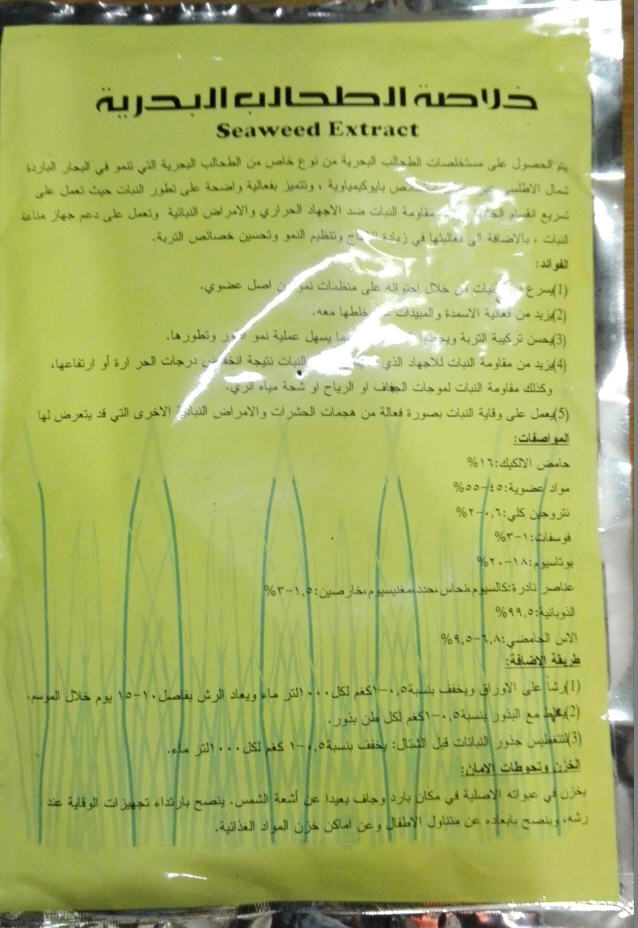 خلاصة الطحالب البحرية
Seaweed Extract
يتم الحصول على مستخلصات الطحالب البحرية من نوع خاص من الطحالب البحرية التي تنمو في البحار الباردة
شمال الاطلسي بايوكيمياوية ، وتتميز بفعالية واضحة على تطور النبات حيث تعمل على
تسريع انقسام مقاومة النبات ضد الاجهاد الحراري والامراض النباتية وتعمل على دعم جهاز مناعة
النبات ، بالاضافة الى فعاليتها في زيادة وتنظيم النمو وتحسين خصائص التربة.
الفوائد:
(1)يسرع من خلال احتوائه على منظمات نمو من اصل عضوي.
(2)يزيد من فعالية الاسمدة والمبيدات خلطها معه.
(3)يحسن تركيبة التربة يسهل عملية نمو وتطورها.
(4)يزيد من مقاومة النبات للاجهاد الذي النبات نتيجة انخفاض درجات الحر ارة أو ارتفاعها،
وكذلك مقاومة النبات لموجات الجفاف او الرياح او شحة مياه الري.
(5)يعمل على وقاية النبات بصورة فعالة من هجمات الحشرات والامراض النباتية الاخرى التي قد يتعرض لها
المواصفات:
حامض الالكيك:١٦%
مواد عضوية:٤٥-٥٥%
نتروجين كلي:٠,٦-٢%
فوسفات:١-٣%
بوتاسيوم:١٨-٢٠%
عناصر نادرة:كالسيوم،نحاس،حديد،مغنيسيوم،خارصين:١,٥-٣%
الذوبانية:٩٩.٥%
الاس الحامضي:٦,٨-٩,٥%
طريقة الاضافة:
(1)رشاً على الاوراق ويخفف بنسبة٠,٥-١كغم لكل١٠٠٠لتر ماء ويعاد الرش بفاصل١٠-١٥ يوم خلال الموسم.
(2)يخلط مع البذور بنسبة٠,٥-١كغم لكل طن بذور.
(3)لتغطيس جذور النباتات قبل الشتال: يخفف بنسبة٠,٥-١ كغم لكل١٠٠٠لتر ماء.
الخزن وتحوطات الامان:
يخزن في عبواته الاصلية في مكان بارد وجاف بعيدا عن أشعة الشمس. ينصح بارتداء تجهيزات الوقاية عند
رشه، وينصح بابعاده عن متناول الاطفال وعن اماكن خزن المواد الغذائية.